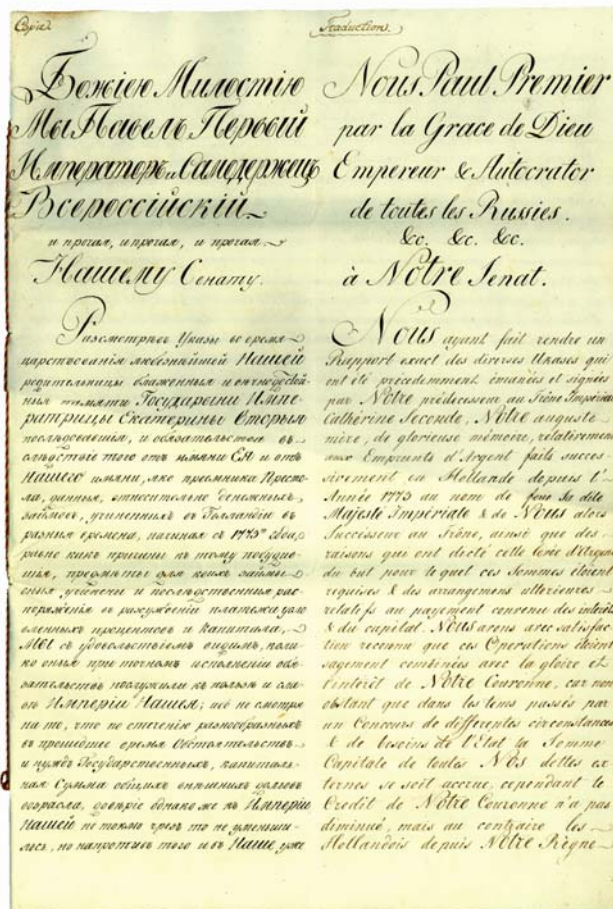 Copia
Божіею Милостію
Мы Павелъ Первый
Императоръ и Самодержецъ
Всероссійскій
и прочая, и прочая, и прочая
Нашему Сенату.
Разсмотрѣвъ Указы во время
царствованія любезнѣйшей Нашей
родительницы блаженныя и вѣчнодостой-
ныя памяти Государыни Импе-
ратрицы Екатерины Вторыя
послѣдовавшія, и обязательства въ
слѣдствіе того отъ имяни Ея и отъ
Нашего имяни, яко преемника Престо-
ла, данныя, относительно денежныхъ
займовъ, учиненныхъ въ Голландіи въ
разныя времена, начиная съ 1773го года,
равно какъ причины къ тому побудив-
шія, предмѣты для коихъ займы
оныя учинены и послѣдственныя рас-
поряженія въ разсужденіи платежа усло-
вленныхъ процентовъ и капитала,
Мы съ удовольствіемъ видимъ, коли-
ко оныя при точномъ исполненіи обя-
зательствъ послужили къ пользѣ и сла-
вѣ Имперіи Нашея; ибо не смотря
на то, что по стеченію разнообразныхъ
въ прошедшее время Обстоятельствъ
и нуждъ Государственныхъ, капиталь-
ная Сумма общихъ внѣшнихъ долговъ
возрасла, довѣріе однакоже къ Имперіи
Нашей не токмо чрезъ то не уменьши-
лось, но напротивъ того и въ Наше уже
Traduction.
Nous Paul Premier
par la Grace de Dieu
Empereur & Autocrator
de toutes les Russies.
&c. &c. &c.
à Notre Senat.
Nous ayant fait rendre un
Rapport exact des diverses Ukases qui
ont été précedemment émanées et signées
par Notre prédécesseur au Trône Impérial
Cathérine Seconde, Notre auguste
mère, de glorieuse mémoire, relativement
aux Emprunts d'Argent faits succes-
sivement en Hollande depuis l'
Année 1773 au nom de feue Sa dite
Majesté Impériale & de Nous alors
Successeur au Trône, ainsi que des
raisons qui ont dicté cette levée d'Argent
du but pour le quel ces Sommes étoient
requises & des arrangemens ulterieures
relatifs au payement convenu des intérêts
& du capital. Nous avons avec satisfac-
tion reconnu que ces Operations étoient
sagement combinées avec la gloire et
l'interêt de Notre Couronne, car non
obstant que dans les tems passés par
un Concours de differentes circonstances
& de besoins de l'Etat la Somme
Capitale de toutes Nos dettes ex-
ternes se soit accrue, cependant le
Credit de Notre Couronne n'a pas
diminué, mais au contraire les
Hollandois depuis Notre Règne